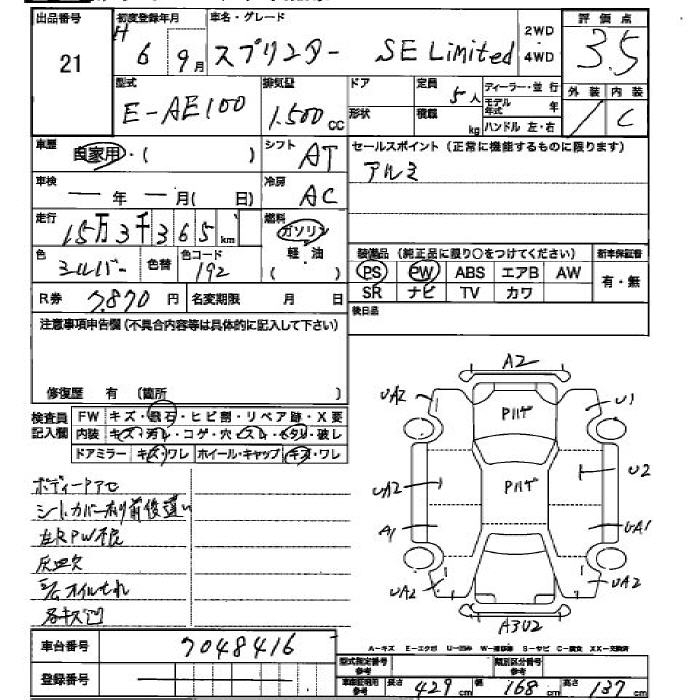 出品番号 初度登録年月 車名・グレード 評価点
21 H 6 9月 スプリンター SE Limited 2WD 4WD 3.5
型式 排気量 ドア 定員 ディーラー・並行 外装 内装
E-AE100 1.500cc 形状 5人 積載 kg モデル年式 年 ハンドル 左・右 / C
車歴 自家用・( ) シフト AT セールスポイント (正常に機能するものに限ります)
車検 ー年ー月( 日) 冷房 AC アルミ
走行 15万3千365km 燃料 ガソリン 軽・油 ( )
色 シルバー 色替 色コード 192 装備品 (純正品に限り○をつけてください) 新車保証書
PS PW ABS エアB AW 有・無
SR ナビ TV カワ
R券 7.870円 名変期限 月 日 後日品
注意事項申告欄(不具合内容等は具体的に記入して下さい)
修復歴 有 (箇所 )
検査員記入欄 FW キズ・飛石・ヒビ割・リペア跡・X要
内装 キズ・汚レ・コゲ・穴・スレ・ヘタリ・破レ
ドアミラー キズ・ワレ ホイール・キャップ キズ・ワレ
ボディートアセ
シートカバー有り前後違い
左RPW不良
灰皿欠
E/Gオイルモレ
各キズ凹
A2
UA2 U1
Pハゲ
UA2 Pハゲ U2
A1 UA1
UA2 UA2
A3U2
A-キズ E-エクボ U-凹み W-補修跡 S-サビ C-腐食 XX-交換済
車台番号 7048416 型式指定番号 参考 類別区分番号 参考
登録番号 車庫証明用 参考 長さ 429cm 幅 168cm 高さ 137cm